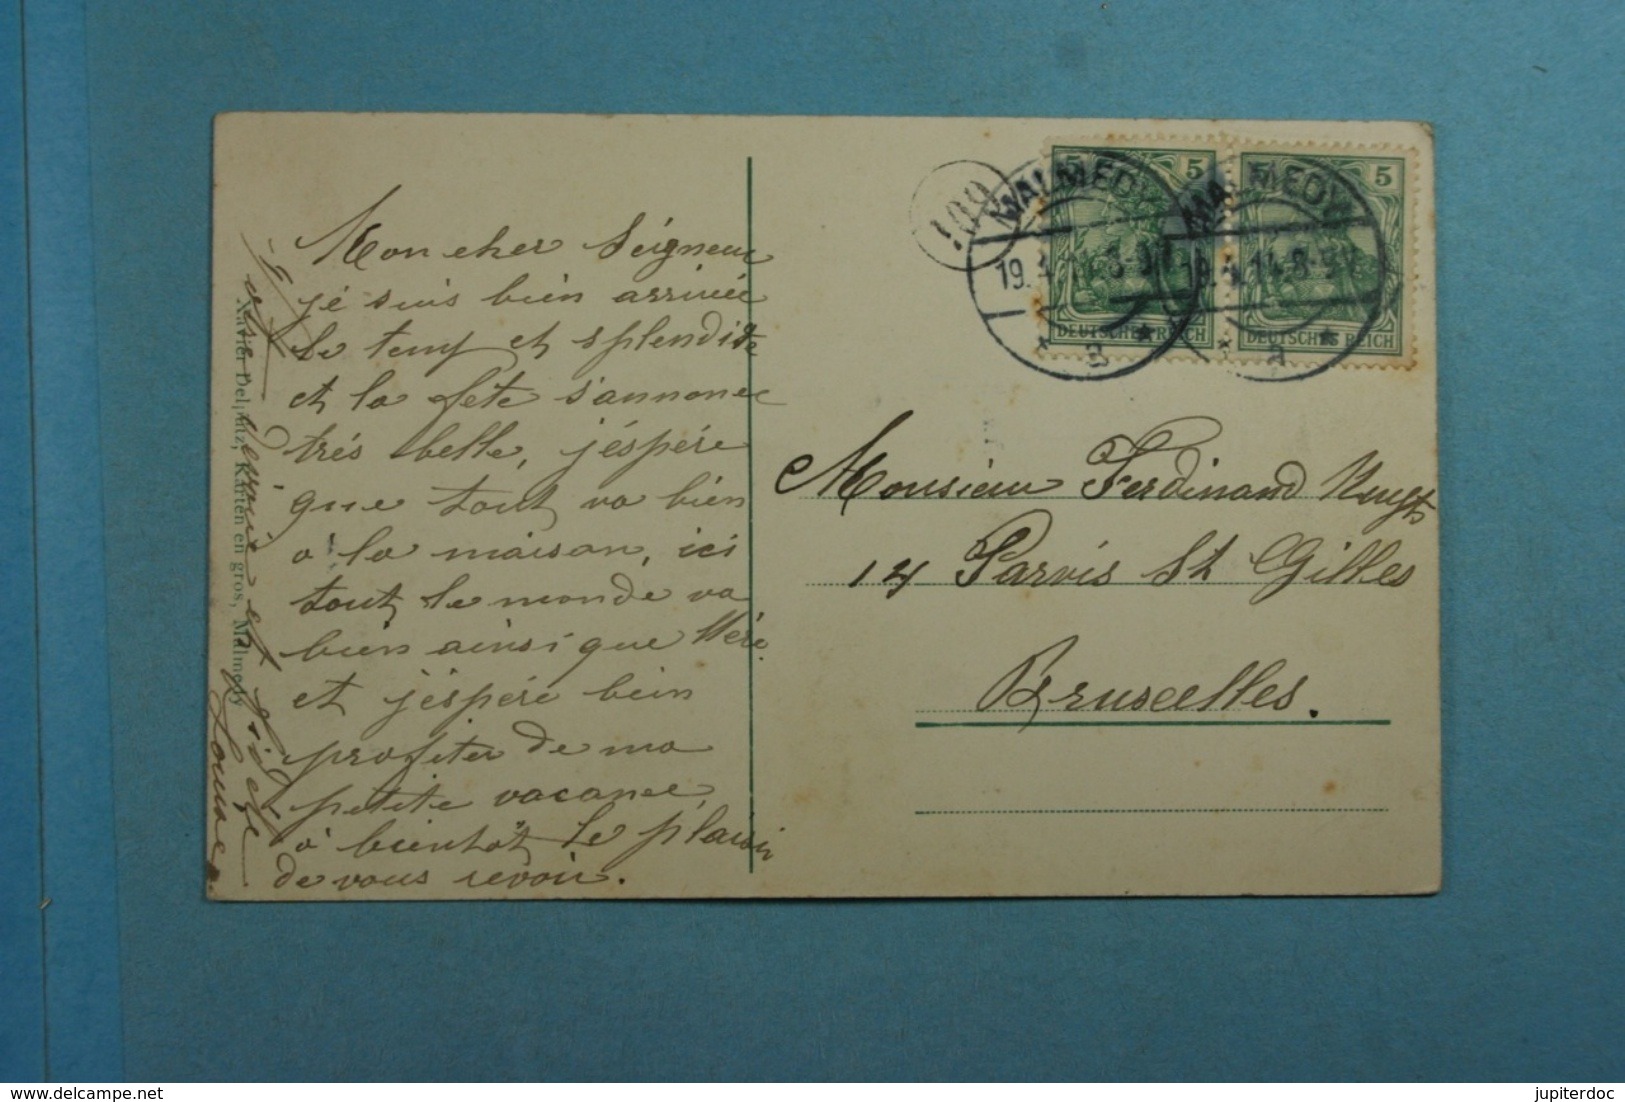 Mon cher Seigneur
jé suis bien arrivée
le temp et splendide
et la fête s'annonce
trés belle, j'éspére
que tout va bien
à la maison, ici
tout le monde va
bien ainsi que Mére
et j'éspére bien
profiter de ma
petite vacance,
à bientôt le plaisir
de vous revoir.
et fidèle
Louise.
Xavier Delputz, Karten en gros, Malmedy
MALMEDY
19.4.14.8-9V
a
MALMEDY
19.4.14.8-9V
a
100
5 5
DEUTSCHES REICH
5 5
DEUTSCHES REICH
Monsieur Ferdinand
14 Parvis St Gilles
Bruxelles.
delcampe.net
jupiterdoc